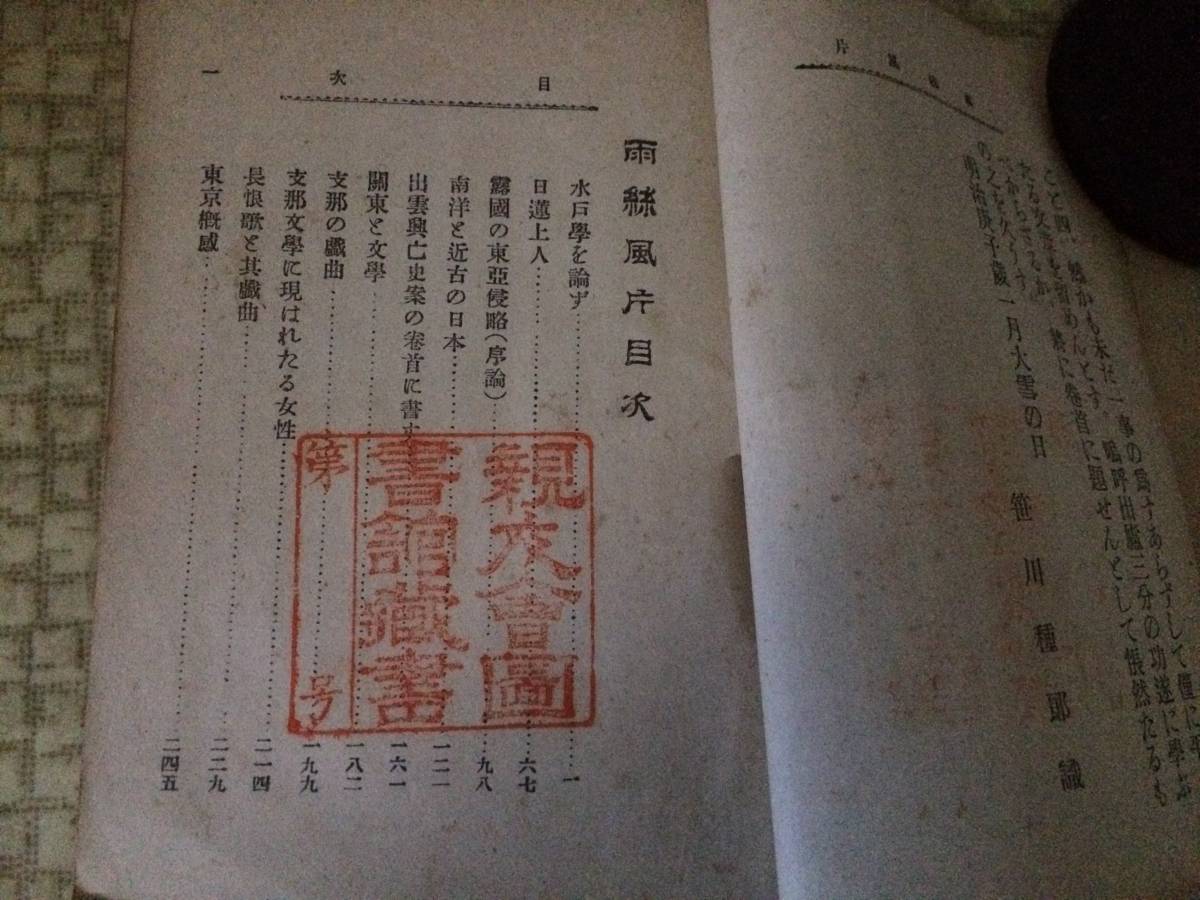 片
然かも未だ一事の爲すあらずして僅に
嗚呼出廬三分の功遂に學ぶ
卷首に題せんとして悵然たるも
のを久うす
明治庚子歳一月大雪の日 笹川種郎識
目次 一
雨絲風片目次
水戸學を論ず……一
日蓮上人……六七
露國の東亞侵略(序論)……九八
南洋と近古の日本……一二一
出雲興亡史案の卷首に書す……一六一
關東と文學……一八二
支那の戲曲……一九九
支那文學に現はれたる女性……二一四
長恨歌と其戲曲……二二九
東京概感……二四五
親友會圖
書館藏書
第 号